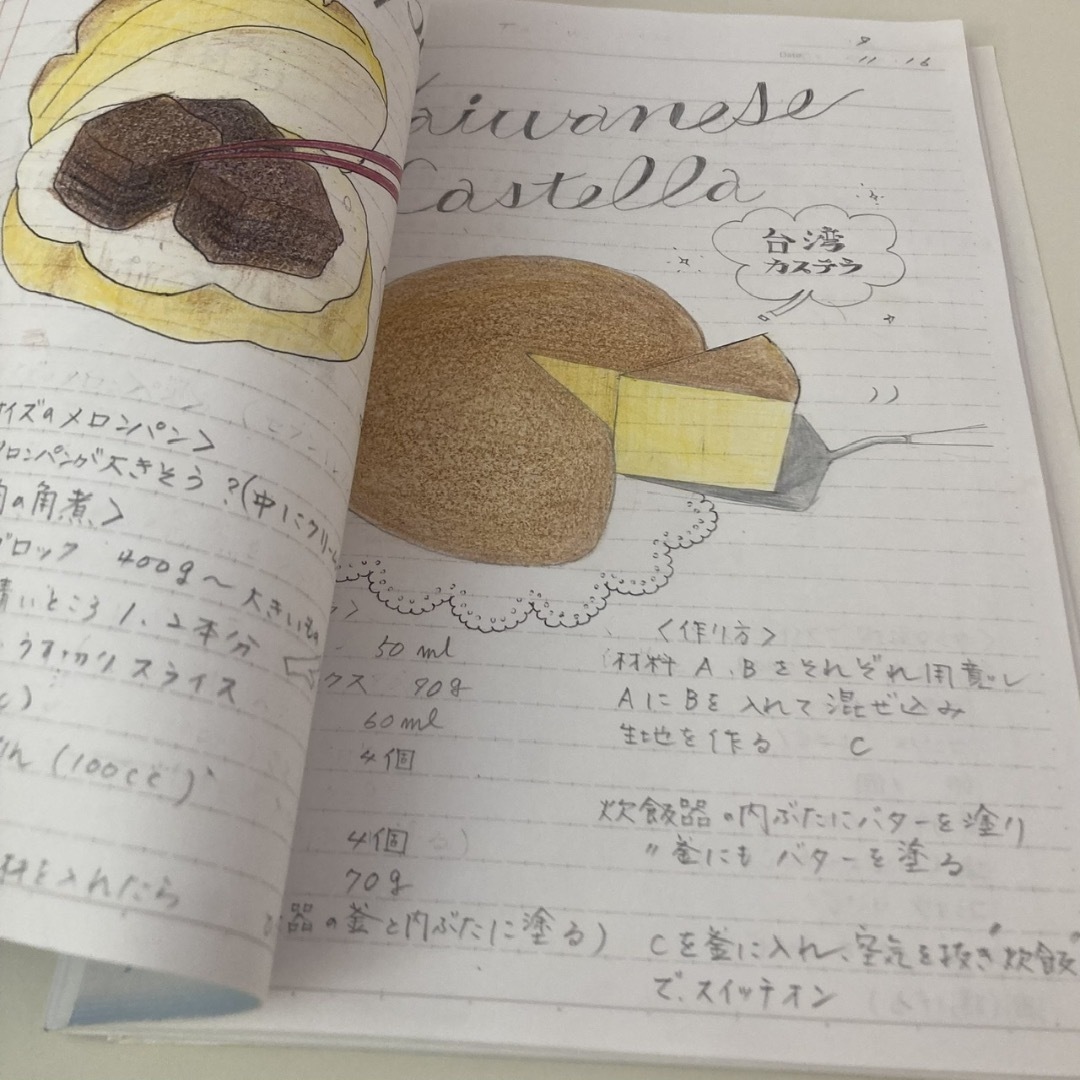 イズのメロンパン〉
メロンパンが大きそう?(中にクリーム
肉の角煮〉
ブロック 400g〜大きいもの
青いところ 1、2本分
うすっかりスライス
(100cc)
材を入れたら
Taiwanese
Castella
11.16
台湾
カステラ
50ml
クス 90g
60ml
4個
4個
70g
器の釜と内ぶたに塗る)
〈作り方〉
材料 A、Bをそれぞれ用意し
AにBを入れて混ぜ込み
生地を作る C
炊飯器の内ぶたにバターを塗り
〃 釜にも バターを塗る
Cを釜に入れ、空気を抜き"炊飯"
で、スイッチオン